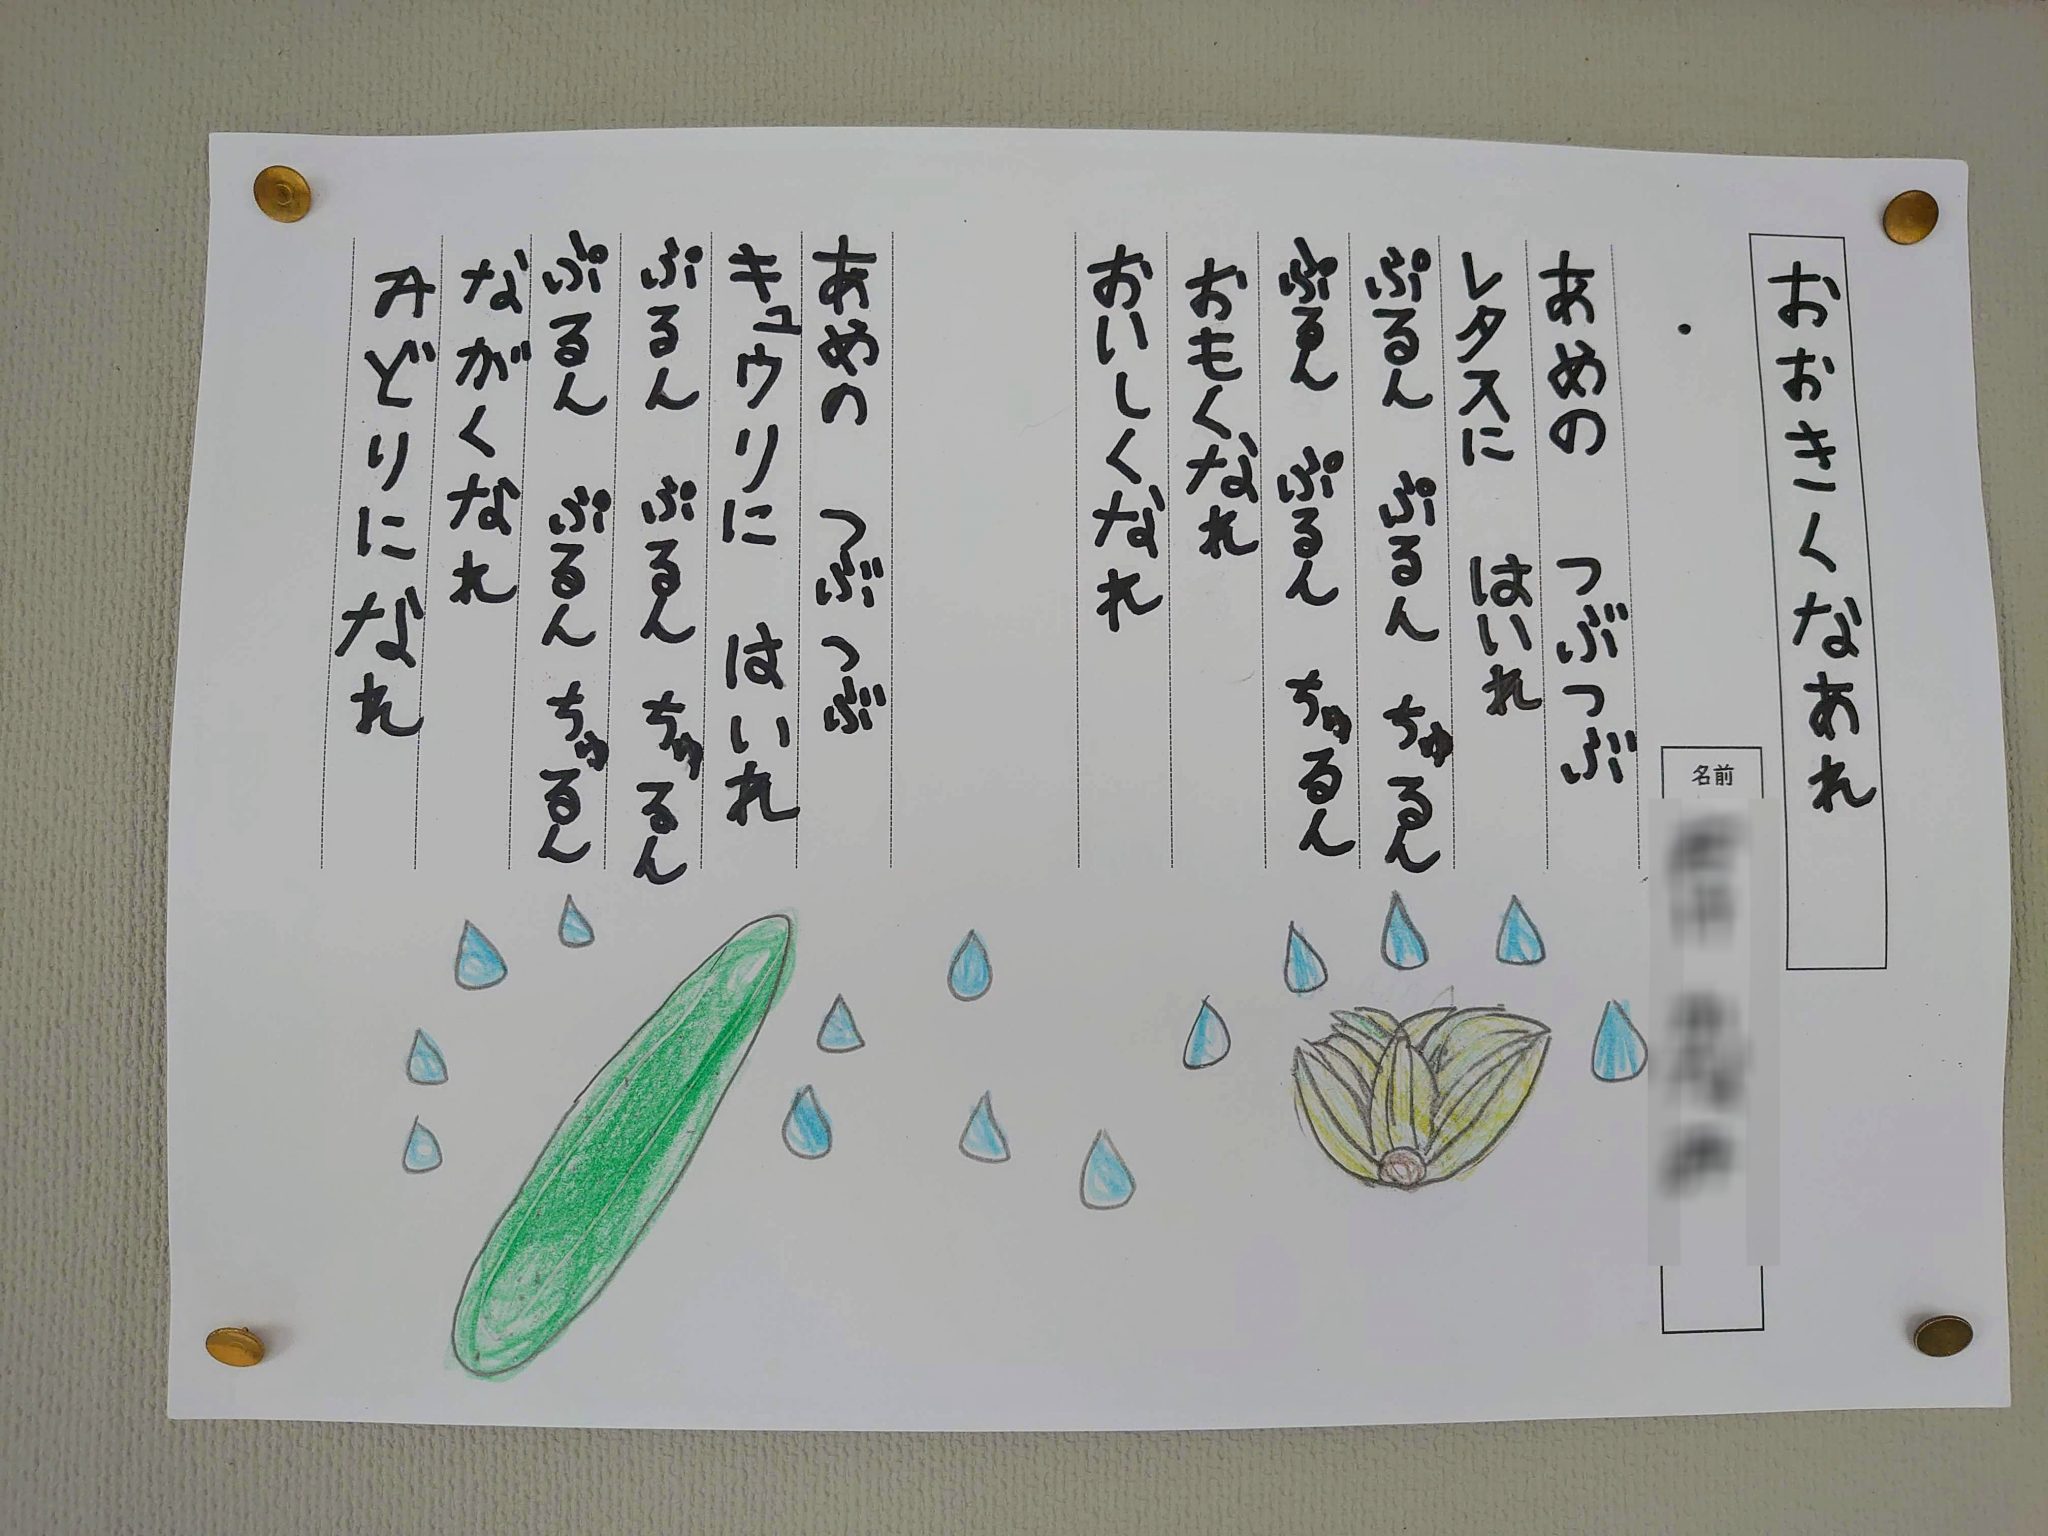 おおきくなあれ
名前
あめの つぶつぶ
レタスに はいれ
ぷるん ぷるん ちゅるん
ぷるん ぷるん ちゅるん
おもくなれ
おいしくなれ
あめの つぶつぶ
キュウリに はいれ
ぷるん ぷるん ちゅるん
ぷるん ぷるん ちゅるん
ながくなれ
みどりになれ